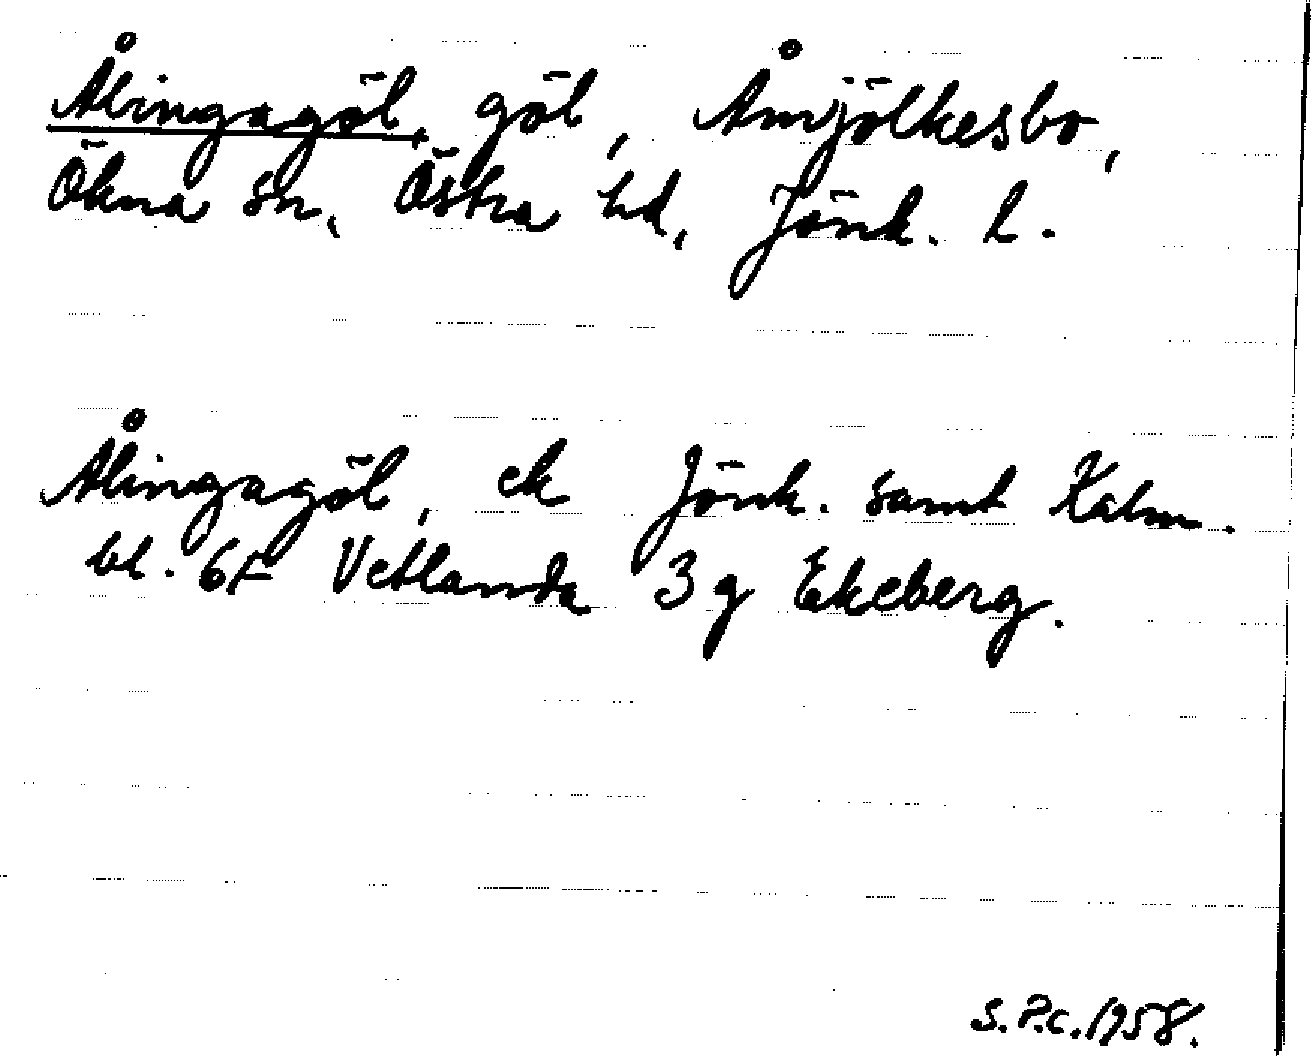 Ålingagöl, göl, Åmjölkesbo,
Ökna sn, Östra hd, Jönk. l.
Ålingagöl, ek Jönk. samt Kalm.
bl. 6F Vetlanda 3g Ekeberg.
S.P.C. 1958.